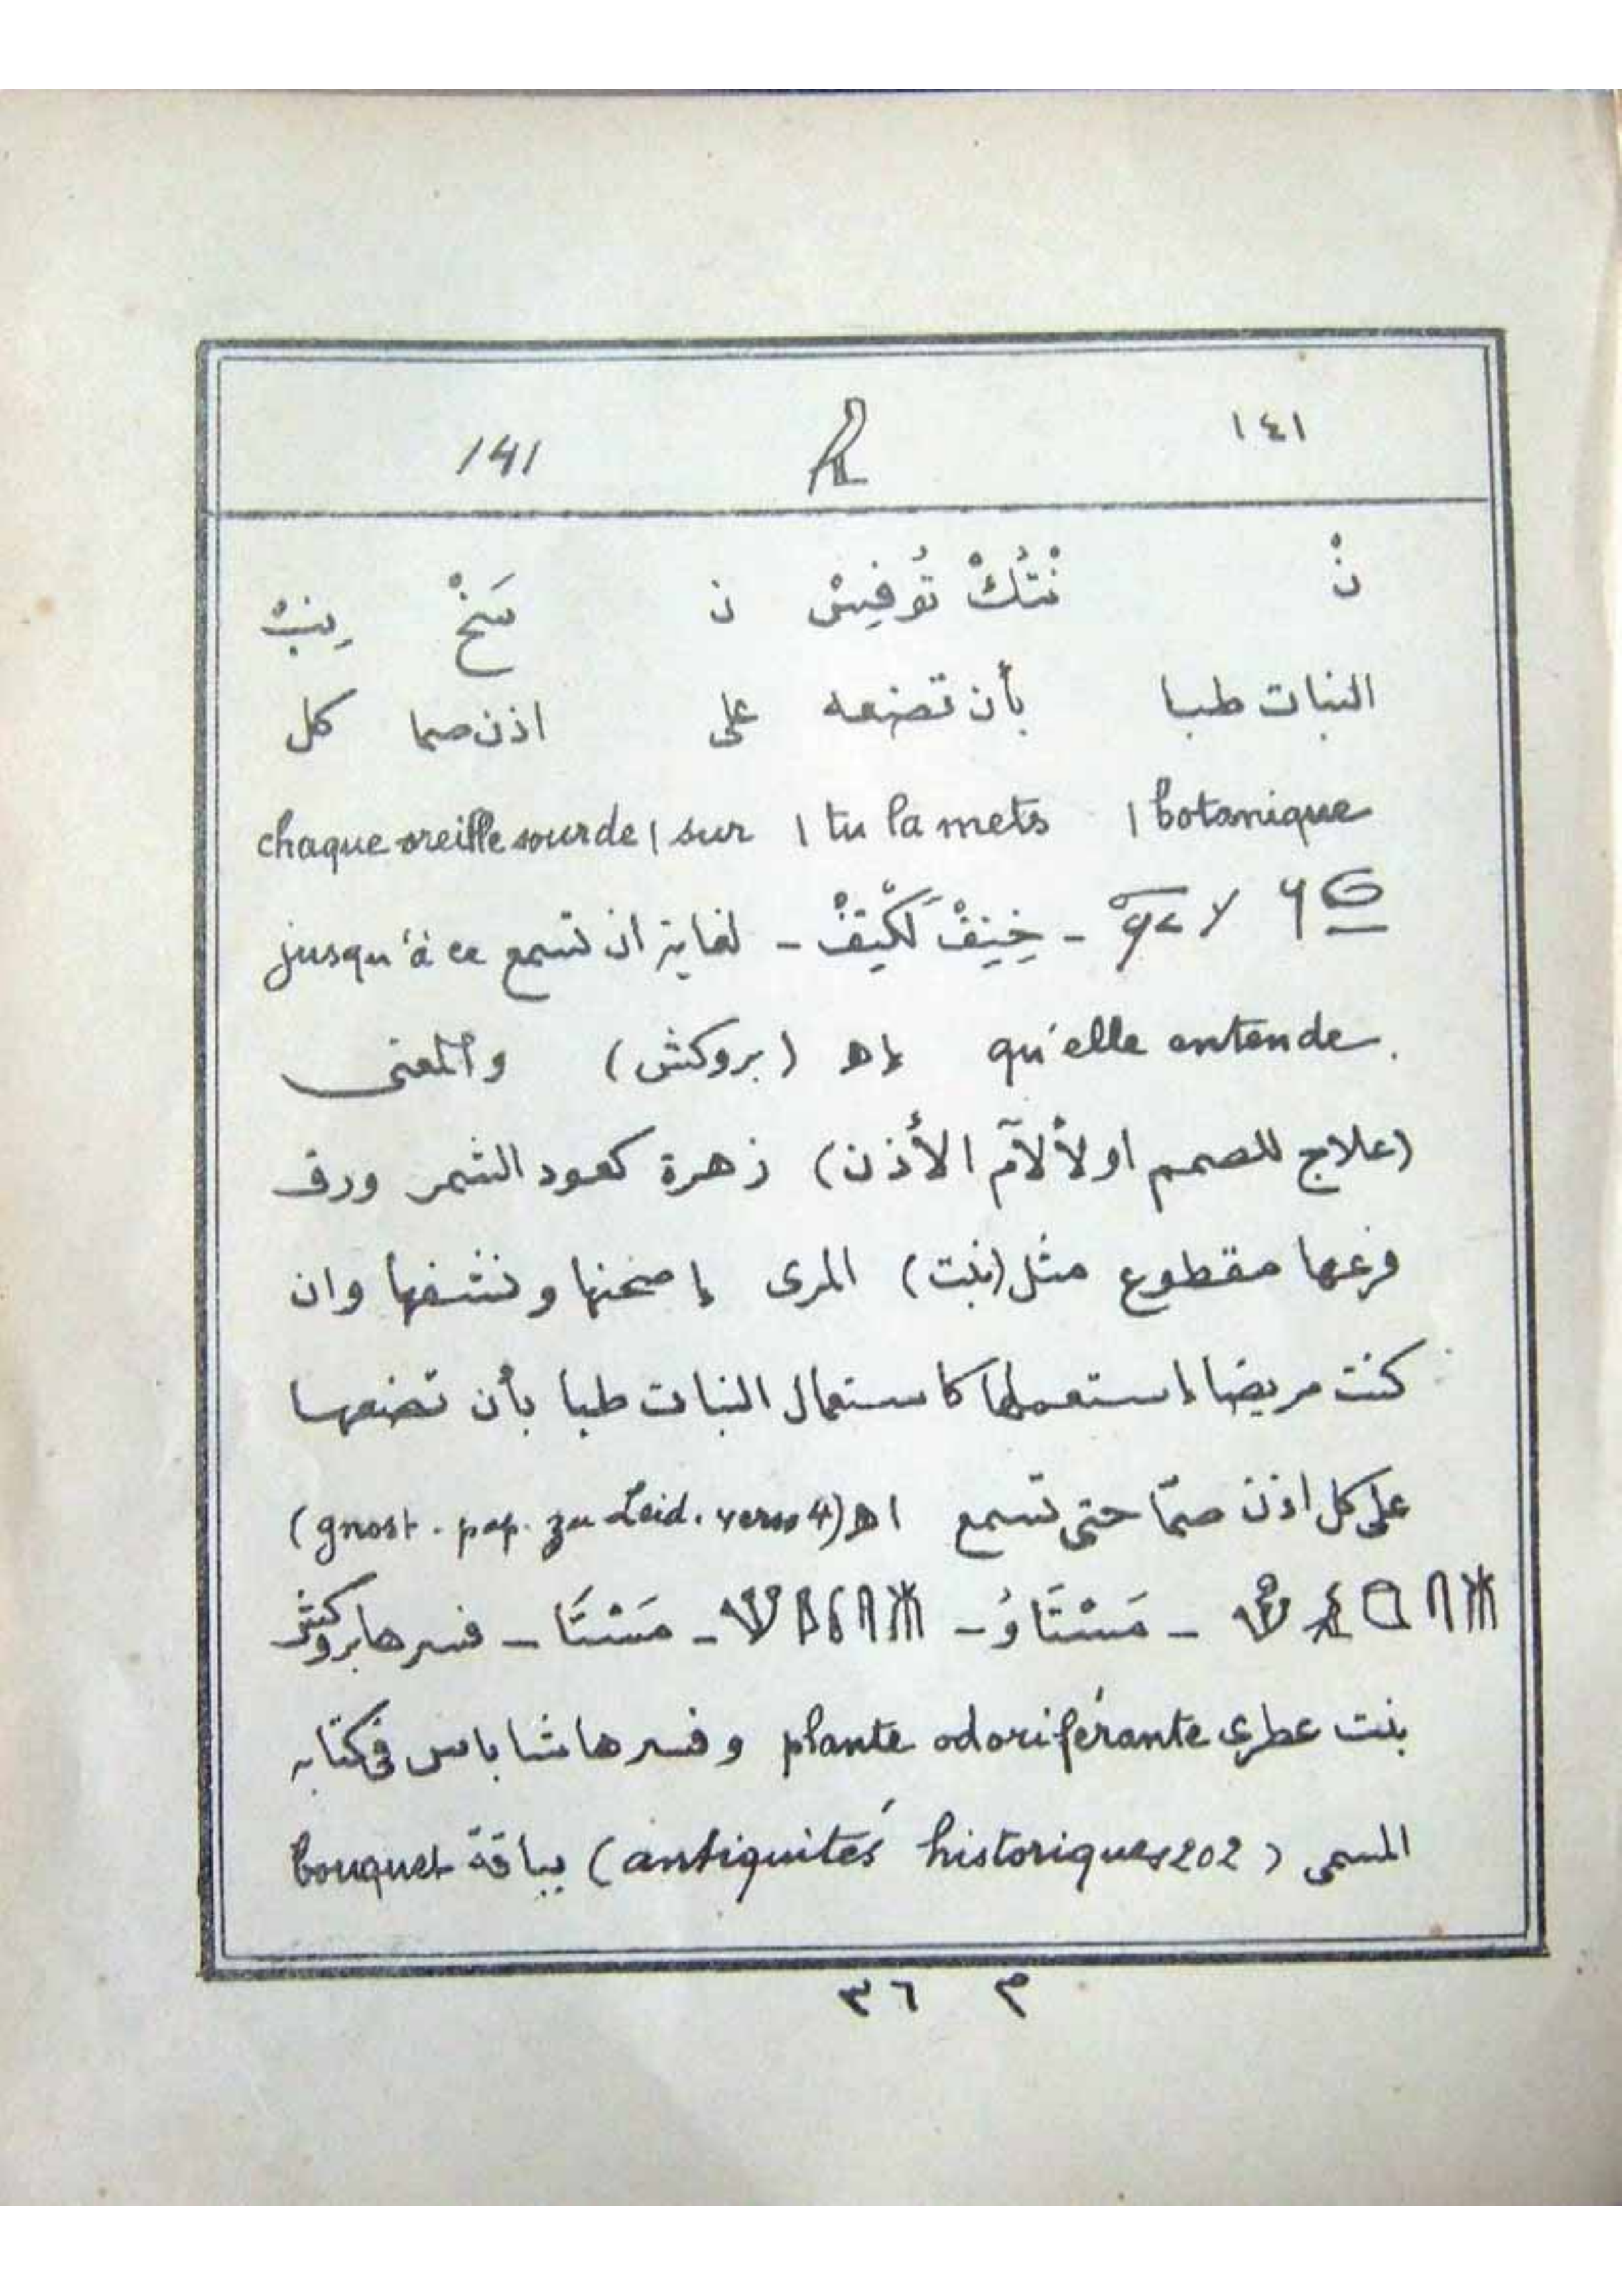 ١٤١ 141
نْ نْتُكْ تُوفِيسْ ن سَخْ
النبات طبا بأن تضعه على اذن صما كل
botanique | tu la mets | sur | chaque oreille sourde
لغاية ان تسمع jusqu'à ce
qu'elle entende. اهـ (بروكش) والمعنى
(علاج للصمم او لألآم الأذن) زهرة كعود الشمر ورق
فرعها مقطوع مثل (نبت) المرى إصحنها ونشفها وان
كنت مريضا إستعملها كاستعمال النبات طبا بأن تضعها
على كل اذن صمّا حتى تسمع اهـ (gnost. pap. zu Leid. verso 4)
- مَسْتَاوُ - - مَسْتَا - فسرها بروكش
بنت عطرى plante odoriférante وفسرها شاباس فى كتابه
المسمى (antiquités historiques 202) بباقة bouquet
م ٣٦